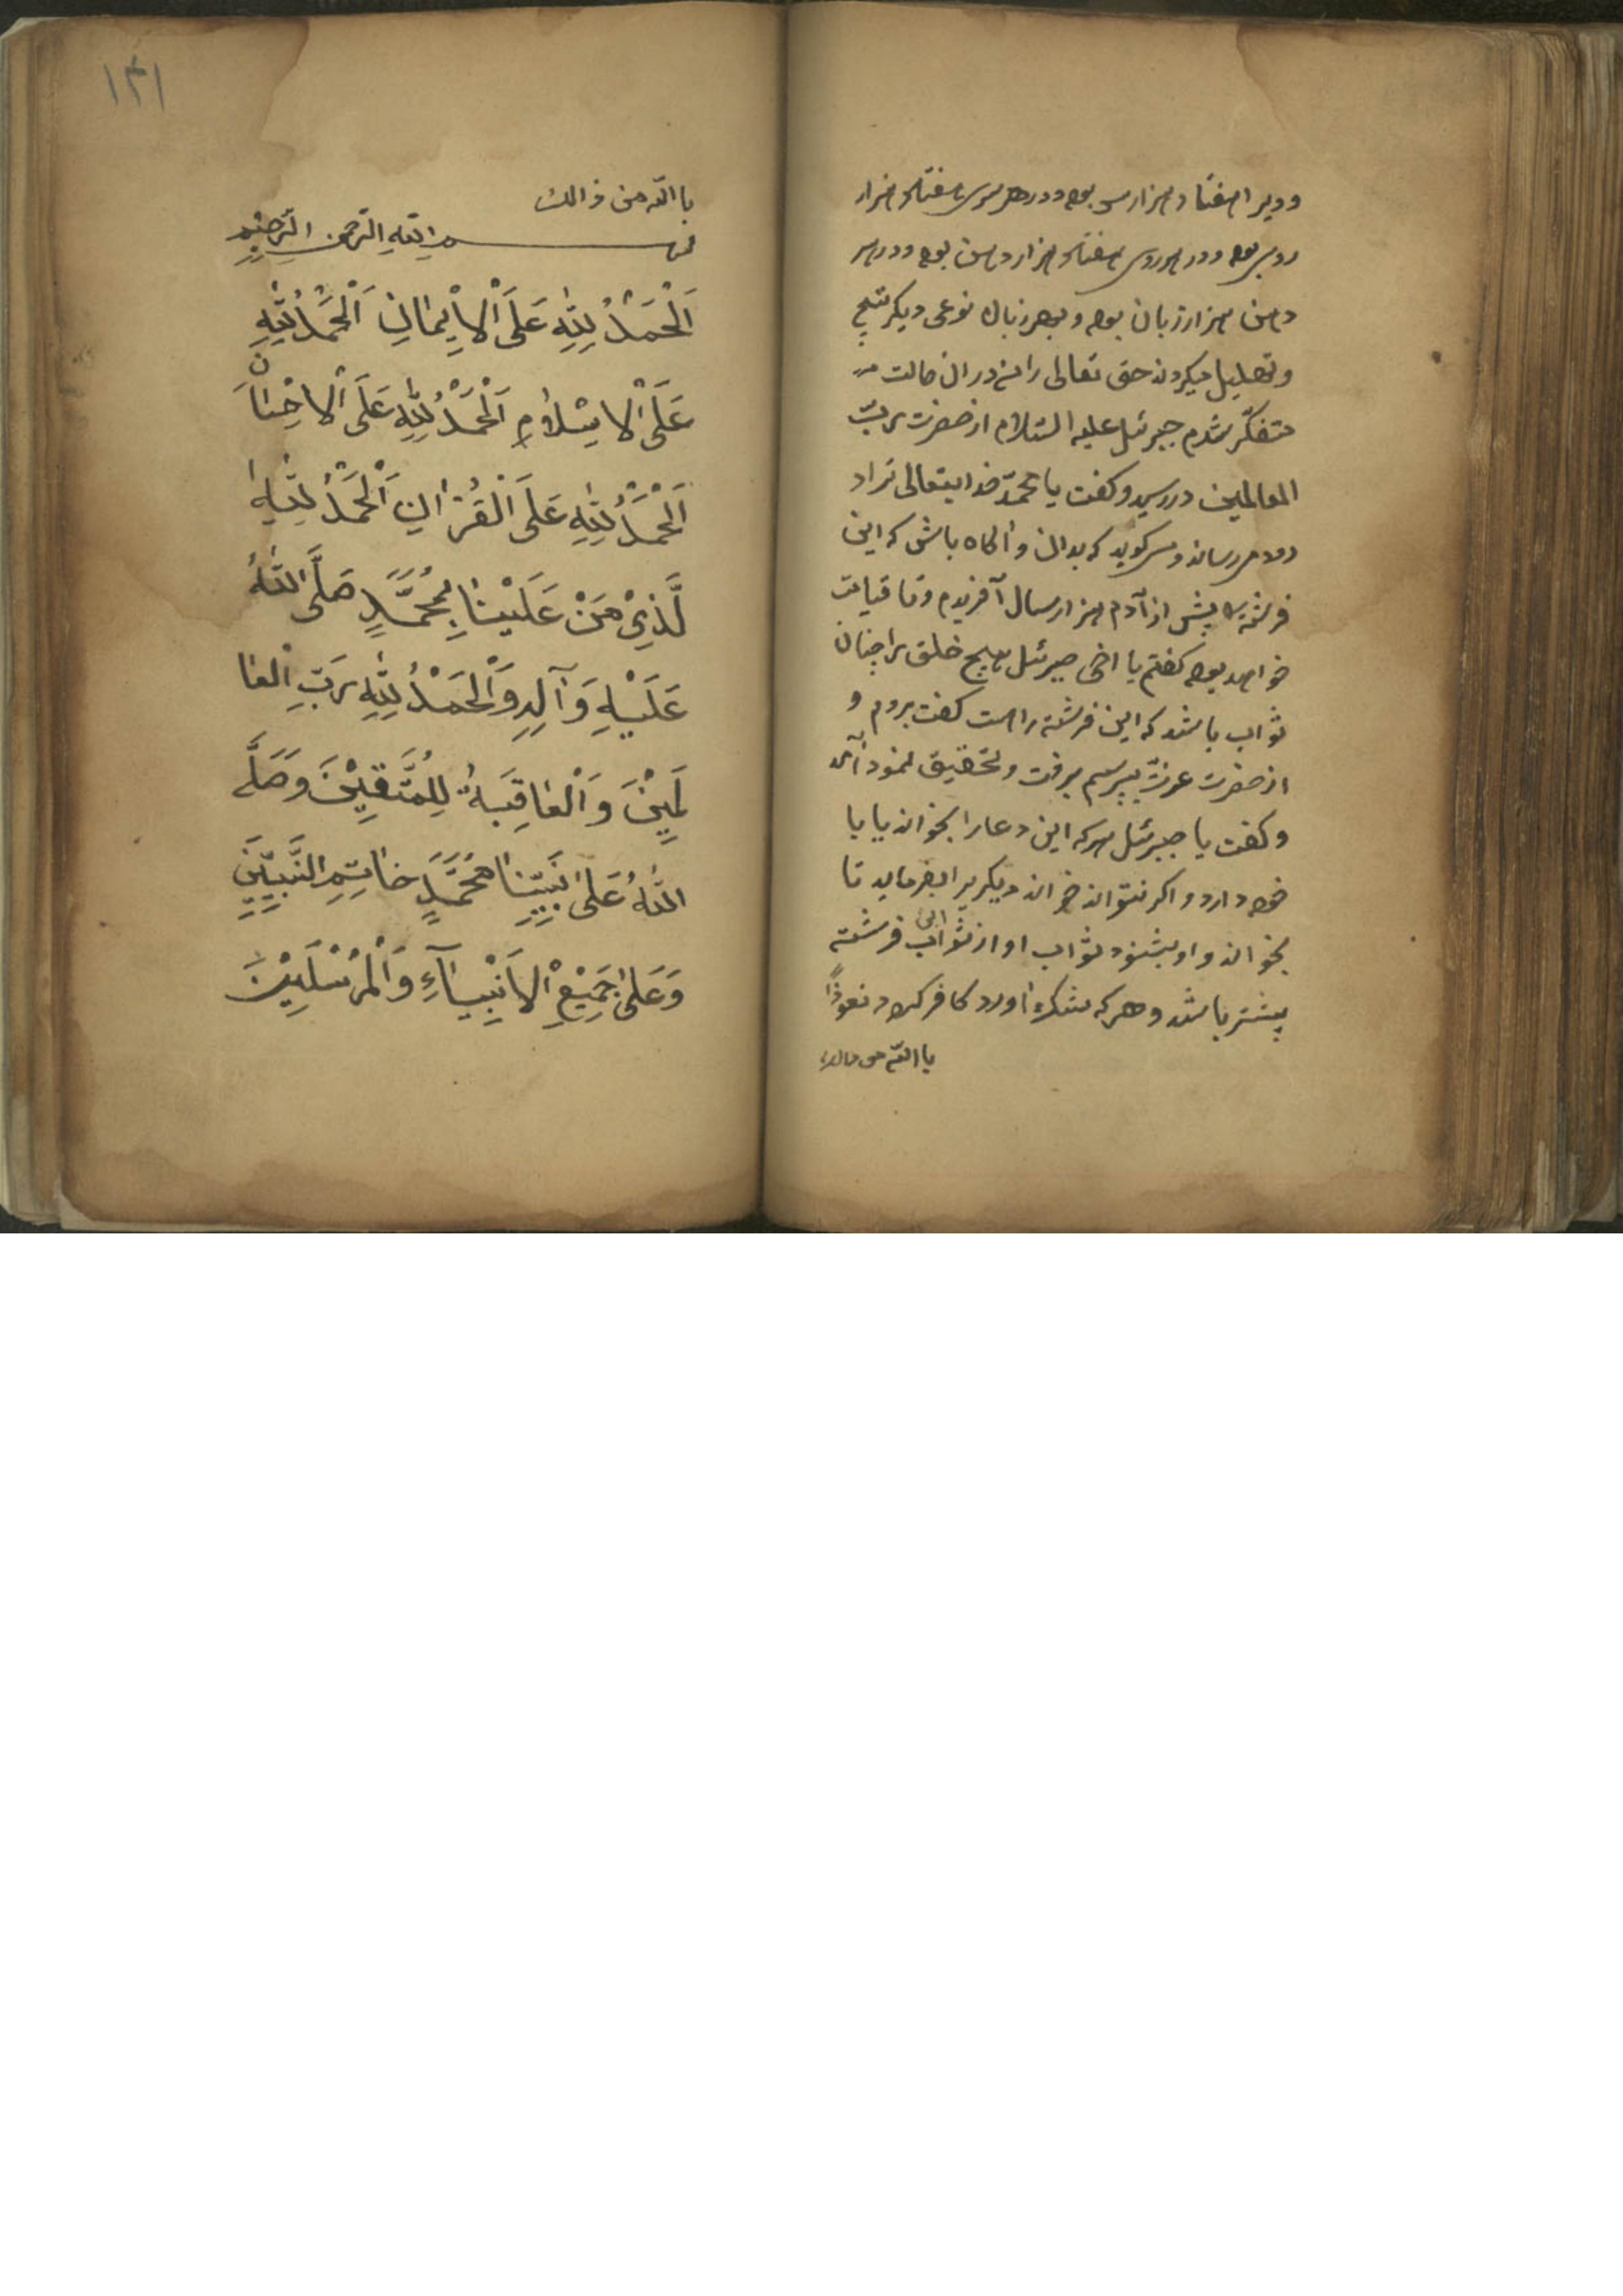 و دیدم هفتاد هزار سر بود و در هر سری هفتاد هزار
روی بود و در هر روی هفتاد هزار دهن بود و در هر
دهن هزار زبان بود و بهر زبان نوعی دیکر تسبیح
و تهلیل میکردند حق تعالی را من در ان حالت
متفکر شدم جبرئیل علیه السّلام از حضرت ربّ
العالمین در رسید و کفت یا محمّد خدایتعالی ترا د
رود میرساند و میکوید که بدان و آکاه باش که این
فرشته را پیش از آدم هزار سال آفریدم و تا قیامت
خواهد بود کفتم یا اخی جبرئیل هیچ خلق را چنان
ثواب باشد که این فرشته راست کفت بروم و
از حضرت عزّت بپرسم برفت و تحقیق نمود آمد
و کفت یا جبرئیل هر که این دعا را بخواند یا با
خود دارد و اکر نتواند خواند دیکریرا بفرماید تا
بخواند و او بشنود ثواب او از ثواب این فرشته
بیشتر باشد و هر که شک آورد کافر کردد نعوذًا
باالله من ذالک
۱۳۱
باالله من ذالک
بسم اللهِ الرّحمن الرَّحِیْمِ
اَلْحَمْدُ لِلّٰهِ عَلَی اْلاِیْمَانِ اَلْحَمْدُ لِلّٰهِ
عَلَی اْلاِسْلَامِ اَلْحَمْدُ لِلّٰهِ عَلَی اْلاِحْسَانِ
اَلْحَمْدُ لِلّٰهِ عَلَی الْقُرْاٰنِ اَلْحَمْدُ لِلّٰهِ ا
لَّذِیْ مَنْ عَلَیْنَا بِمُحَمَّدٍ صَلَّی اللّٰهُ
عَلَیْهِ وَآلِهِ وَالْحَمْدُ لِلّٰهِ رَبِّ الْعَا
لَمِیْنَ وَالْعَاقِبَةُ لِلْمُتَّقِیْنَ وَصَلَّی
اللّٰهُ عَلیٰ نَبِیِّنَا مُحَمَّدٍ خَاتِمِ النَّبِیِّیْنَ
وَعَلیٰ جَمِیْعِ اْلاَنْبِیَآءِ وَالْمُرْسَلِیْنَ